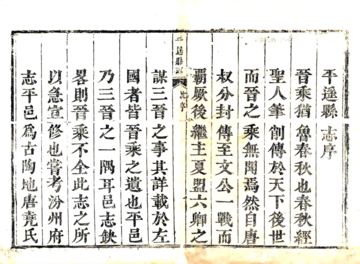 平遙縣志序
晉乘猶魯春秋也春秋經
聖人筆削傳於天下後世
而晉之乘無聞焉然自唐
叔分封傳至文公一戰而
霸厥後繼主夏盟六卿之
謀三晉之事其詳載於左
國者皆晉乘之遺也平邑
乃三晉之一隅耳邑志缺
畧則晉乘不全此志之所
以急宣修也嘗考汾州府
志平邑為古陶地唐堯氏